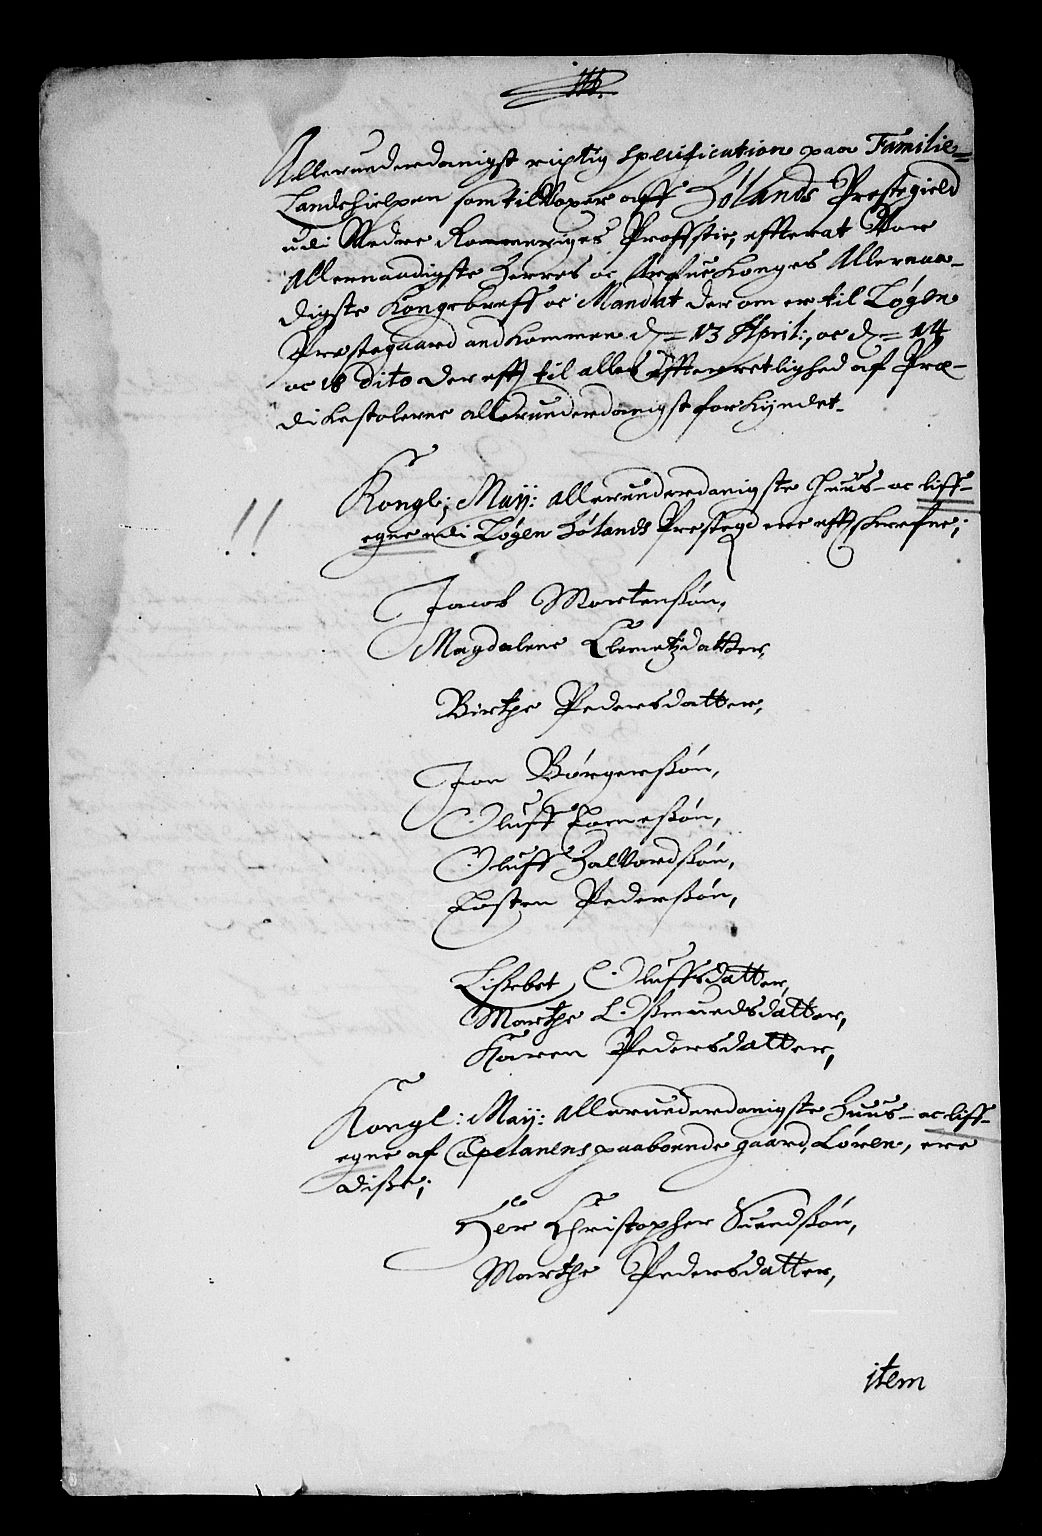 Allerunderdanigst rigtig specification paa Familie=
Landehielpen som tilVoxer aff Hølands Præstegield
udi Nedre Rommeriges Proffstie, effterat Vor
Allernaadigste Herres oc Arfue Konges Allernaa-
digste Kongebreff oc Mandat derom er til Løgen
Præstegaard andkommen d = 13 April:, oc d = 14
oc 18 dito der efft til alles Efftterretlighed af Præ-
dikestolerne allerunderdanigst forkyndet.
Kongl: Maÿ: allerunderdanigste Huus- oc liff-
egne udi Løgen Hølands Prestegd ere efftskrefne;
Jacob Mortenßøn,
Magdalene Clemetzdatter,
Birthe Pedersdatter,
Jon Børgerßøn,
Oluff Larneßøn,
Oluff Halvordßøn,
Losten Pederßøn,
Lißebet Oluffsdatter,
Marthe Oßmundsdatter,
Karen Pedersdatter,
Kongl: Maÿ: Allerunderdanigste Huus- oc liff-
egne af Capelanens paaboende gaard, Løren, ere
diße;
Her Christopher Suendßøn,
Marthe Pedersdatter,
item